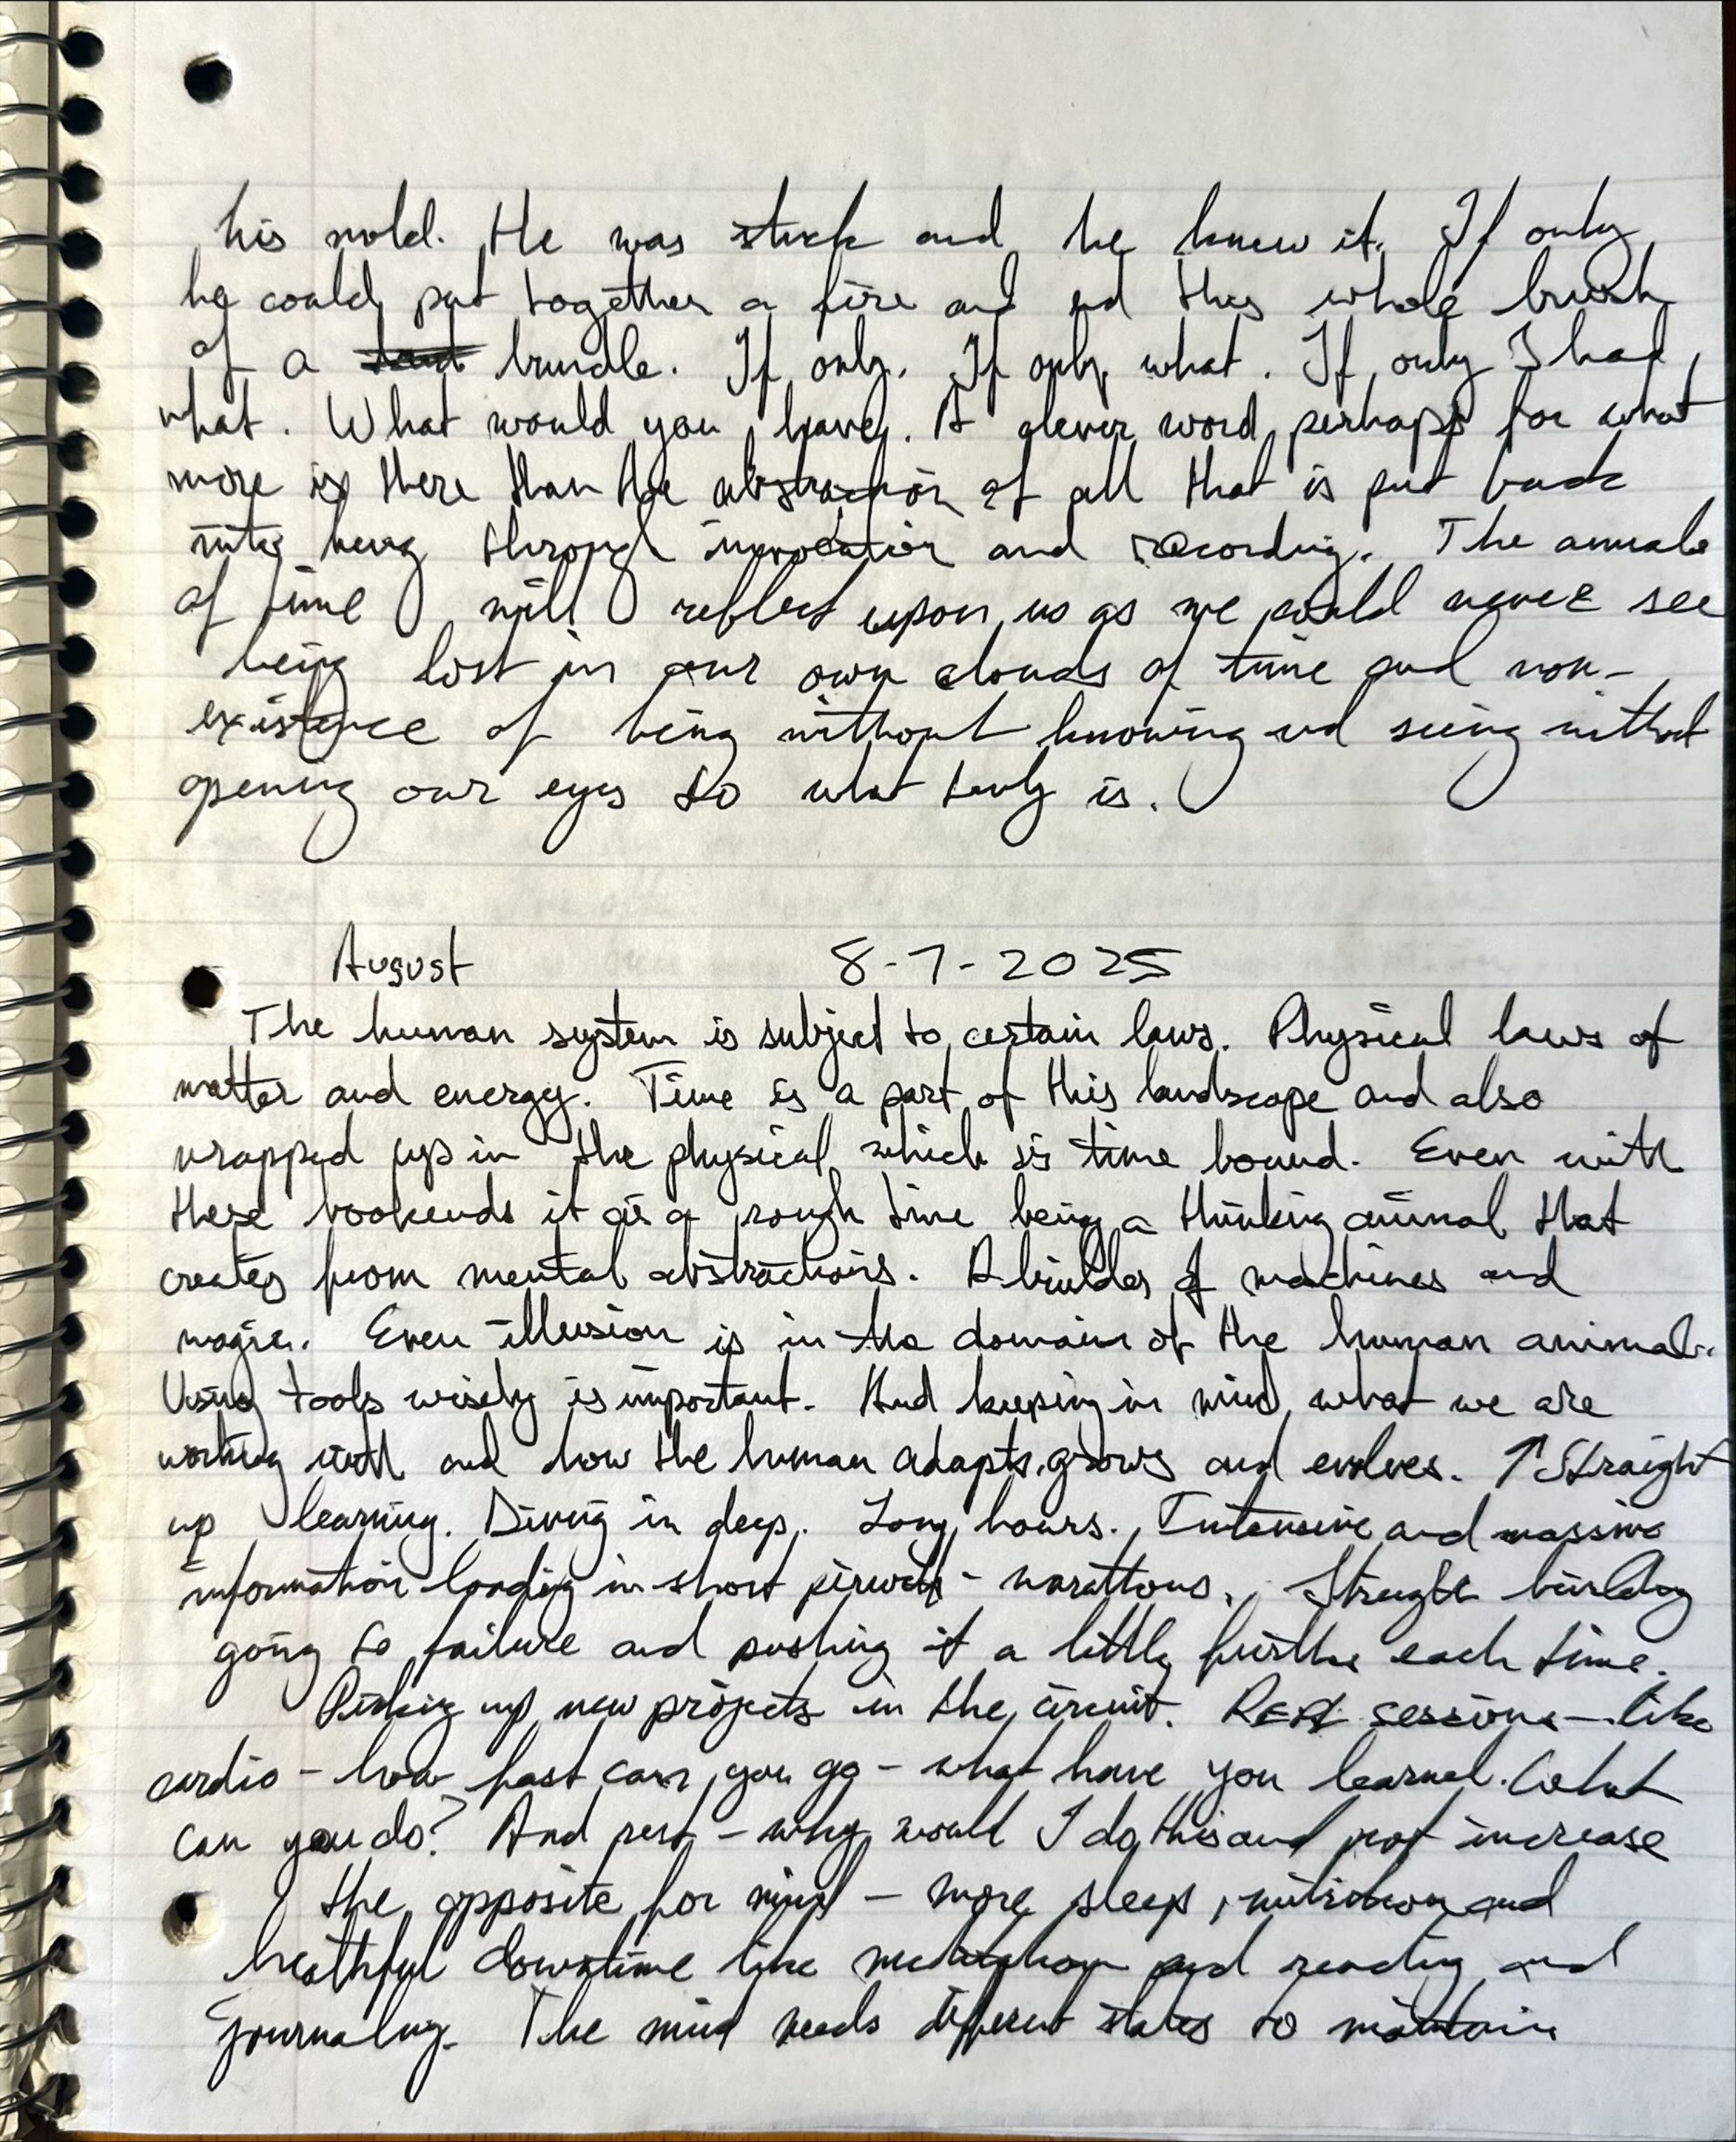 his mold. He was stuck and he knew it. If only
he could put together a fire and end this whole brush
of a bundle. If only. If only what. If only I had,
what. What would you have. A clever word perhaps for what
more is there than the abstraction of all that is put back
into being through invocation and recording. The annals
of time will reflect upon us as we could never see
being lost in our own clouds of time and non-
existence of being without knowing and seeing without
opening our eyes to what truly is.
August 8-7-2025
The human system is subject to certain laws. Physical laws of
matter and energy. Time is a part of this landscape and also
wrapped up in the physical which is time bound. Even with
these bookends it is a rough time being a thinking animal that
creates from mental abstractions. A builder of machines and
magic. Even illusion is in the domain of the human animal.
Using tools wisely is important. And keeping in mind what we are
working with and how the human adapts, grows and evolves. ↑ Straight
up learning. Diving in deep. Long hours. Intensive and massive
information loading in short periods - marathons. Strength building
going to failure and pushing it a little further each time.
Picking up new projects in the circuit. sessions - like
cardio - how fast can you go - what have you learned. What
can you do? And rest - why would I do this and not increase
the opposite for mind - more sleep, nutrition and
healthful downtime like meditation and reading and
journaling. The mind needs different states to maintain